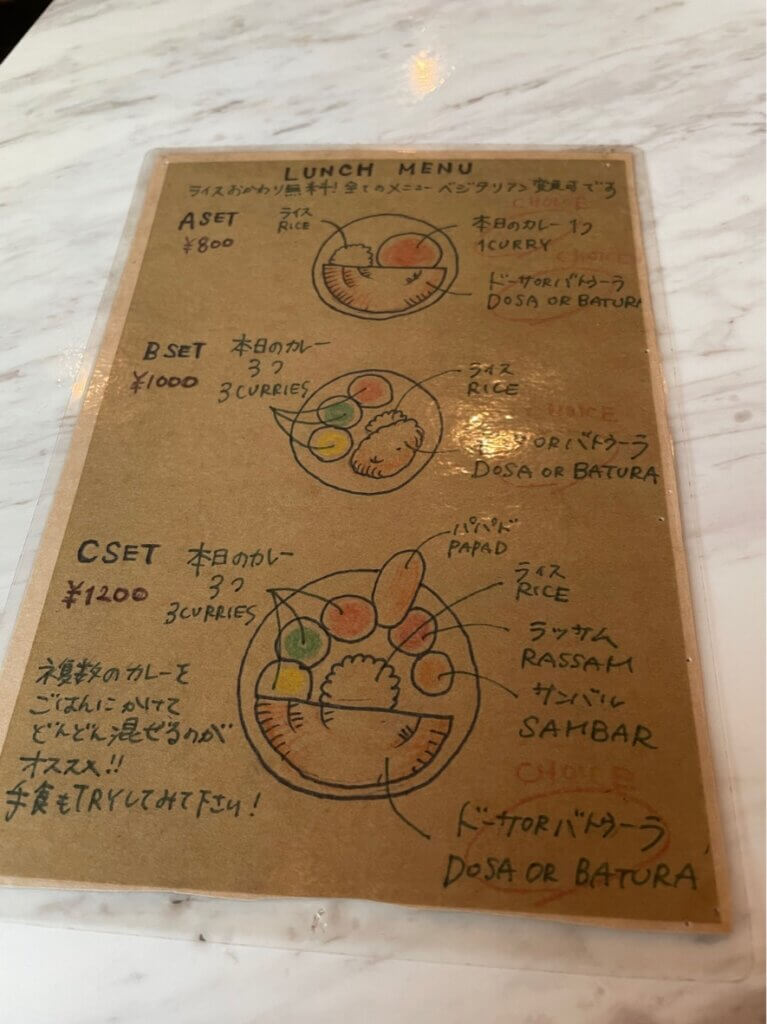 LUNCH MENU
ライスおかわり無料! 全てのメニュー ベジタリアン 変更可です
A SET
¥800
ライス
RICE
CHOICE
本日のカレー 1つ
1CURRY
CHOICE
ドーサORバトゥーラ
DOSA OR BATURA
B SET
¥1000
本日のカレー
3つ
3CURRIES
ライス
RICE
CHOICE
ドーサORバトゥーラ
DOSA OR BATURA
C SET
¥1200
本日のカレー
3つ
3CURRIES
パパド
PAPAD
ライス
RICE
ラッサム
RASSAM
サンバル
SAMBAR
CHOICE
ドーサORバトゥーラ
DOSA OR BATURA
複数のカレーを
ごはんにかけて
どんどん混ぜるのが
オススメ!!
手食もTRYしてみて下さい!